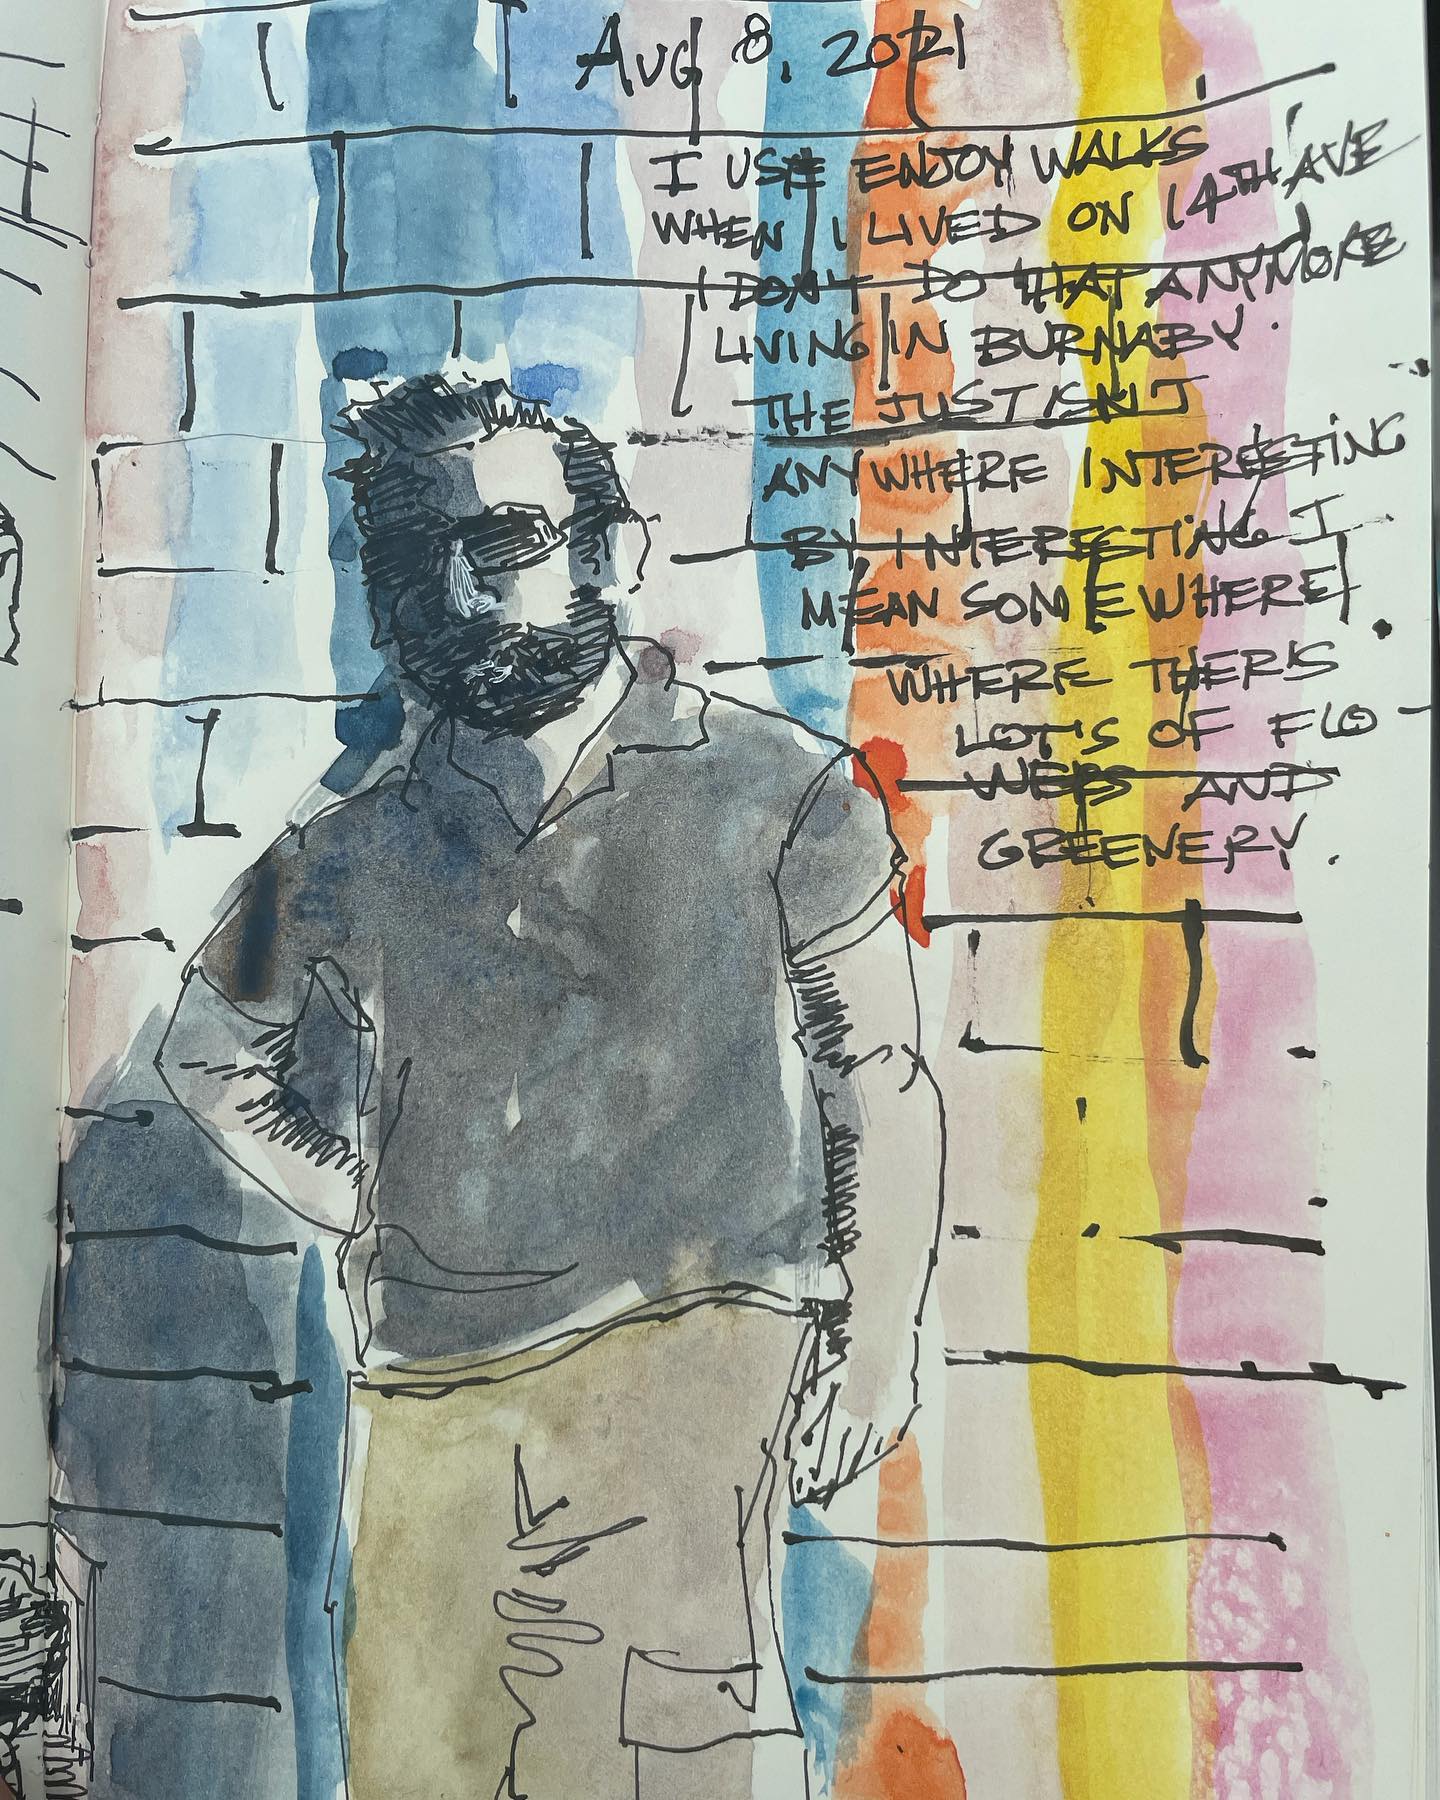 Aug 8, 2021
I USE ENJOY WALKS
WHEN I LIVED ON 14TH AVE
I DON'T DO THAT ANYMORE
LIVING IN BURNABY.
THE JUST ISN'T
ANYWHERE INTERESTING
BY INTERESTING I
MEAN SOMEWHERE
WHERE THER'S
LOT'S OF FLO
WERS AND
GREENERY.